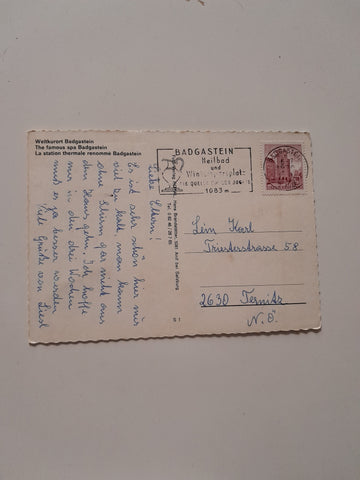 Weltkurort Badgastein
The famous spa Badgastein
La station thermale renommé Badgastein
Liebe Eltern!
Es ist sehr schön hier nur
viel zu kalt man kann
ohne Schirm gar nicht aus
dem Haus gehn. Ich hoffe
nur in den drei Wochen
muß es ja besser werden
Viele Grüße von Liesl
S 1
BADGASTEIN
Heilbad
und
Wintersportplatz
1083 m
BADGASTEIN
Lein Karl
Triesterstrasse 58
2630 Ternitz
N.Ö.